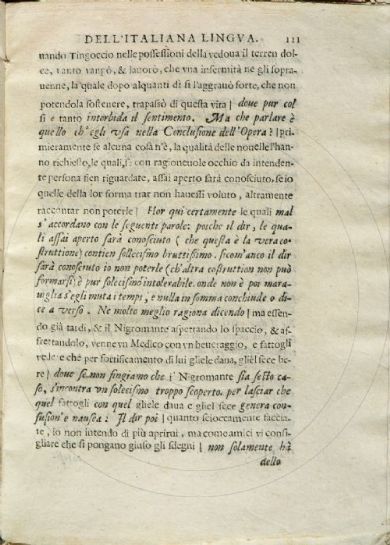 DELL'ITALIANA LINGVA. 111
uando Tingoccio nelle possessioni della vedoua il terren dol-
ce, tanto vangò, & lauorò, che vna infermità ne gli soprau-
uenne, la quale dopo alquanti dì sì l'aggrauò forte, che non
potendola sostenere, trapassò di questa vita | doue pur col
sì e tanto interbida il sentimento. Ma che parlare è
quello ch'egli vsa nella Conclusione dell'Opera? | pri-
mieramente se alcuna cosa n'è, la qualità delle nouelle l'han-
no richiesto, le quali, se con ragioneuole occhio da intenden-
te persona fien riguardate, assai aperto sarà conosciuto, se io
quelle della lor forma trar non hauessi voluto, altramente
raccontar non poterle | Hor qui certamente le quali mal
s'accordano con le seguente parole: poiche il dir, le qua-
li assai aperto sarà conosciuto (che questa è la vera co-
struttione) contien sollecismo bruttissimo. sicom'anco il dir
sarà conosciuto io non poterle (ch'altra costruttion non può
formarsi) è pur solecismo intolerabile. onde non è poi mara-
uiglia s'egli muta i tempi, e nulla in somma conchiude o di-
ce a verso. Ne molto meglio ragiona dicendo | ma essen-
do già tardi, & il Nigromante aspettando lo spaccio, & af-
frettandolo, venne vn Medico con vn beueraggio, e fattogli
vedere che per fortificamento di lui gliele daua, gliel fece be-
re | doue se non fingiamo che il Nigromante sia sesto ca-
so, s'incontra vn solecismo troppo scoperto. per lasciar che
quel fattogli con quel gliele daua e gliel fece genera con-
fusion'e nausea? Il dir poi | quanto scioccamente faccia-
te, io non intendo di più aprirui, ma come amici vi consi-
gliare che si pongano giuso gli sdegni | non solamente hà
dello